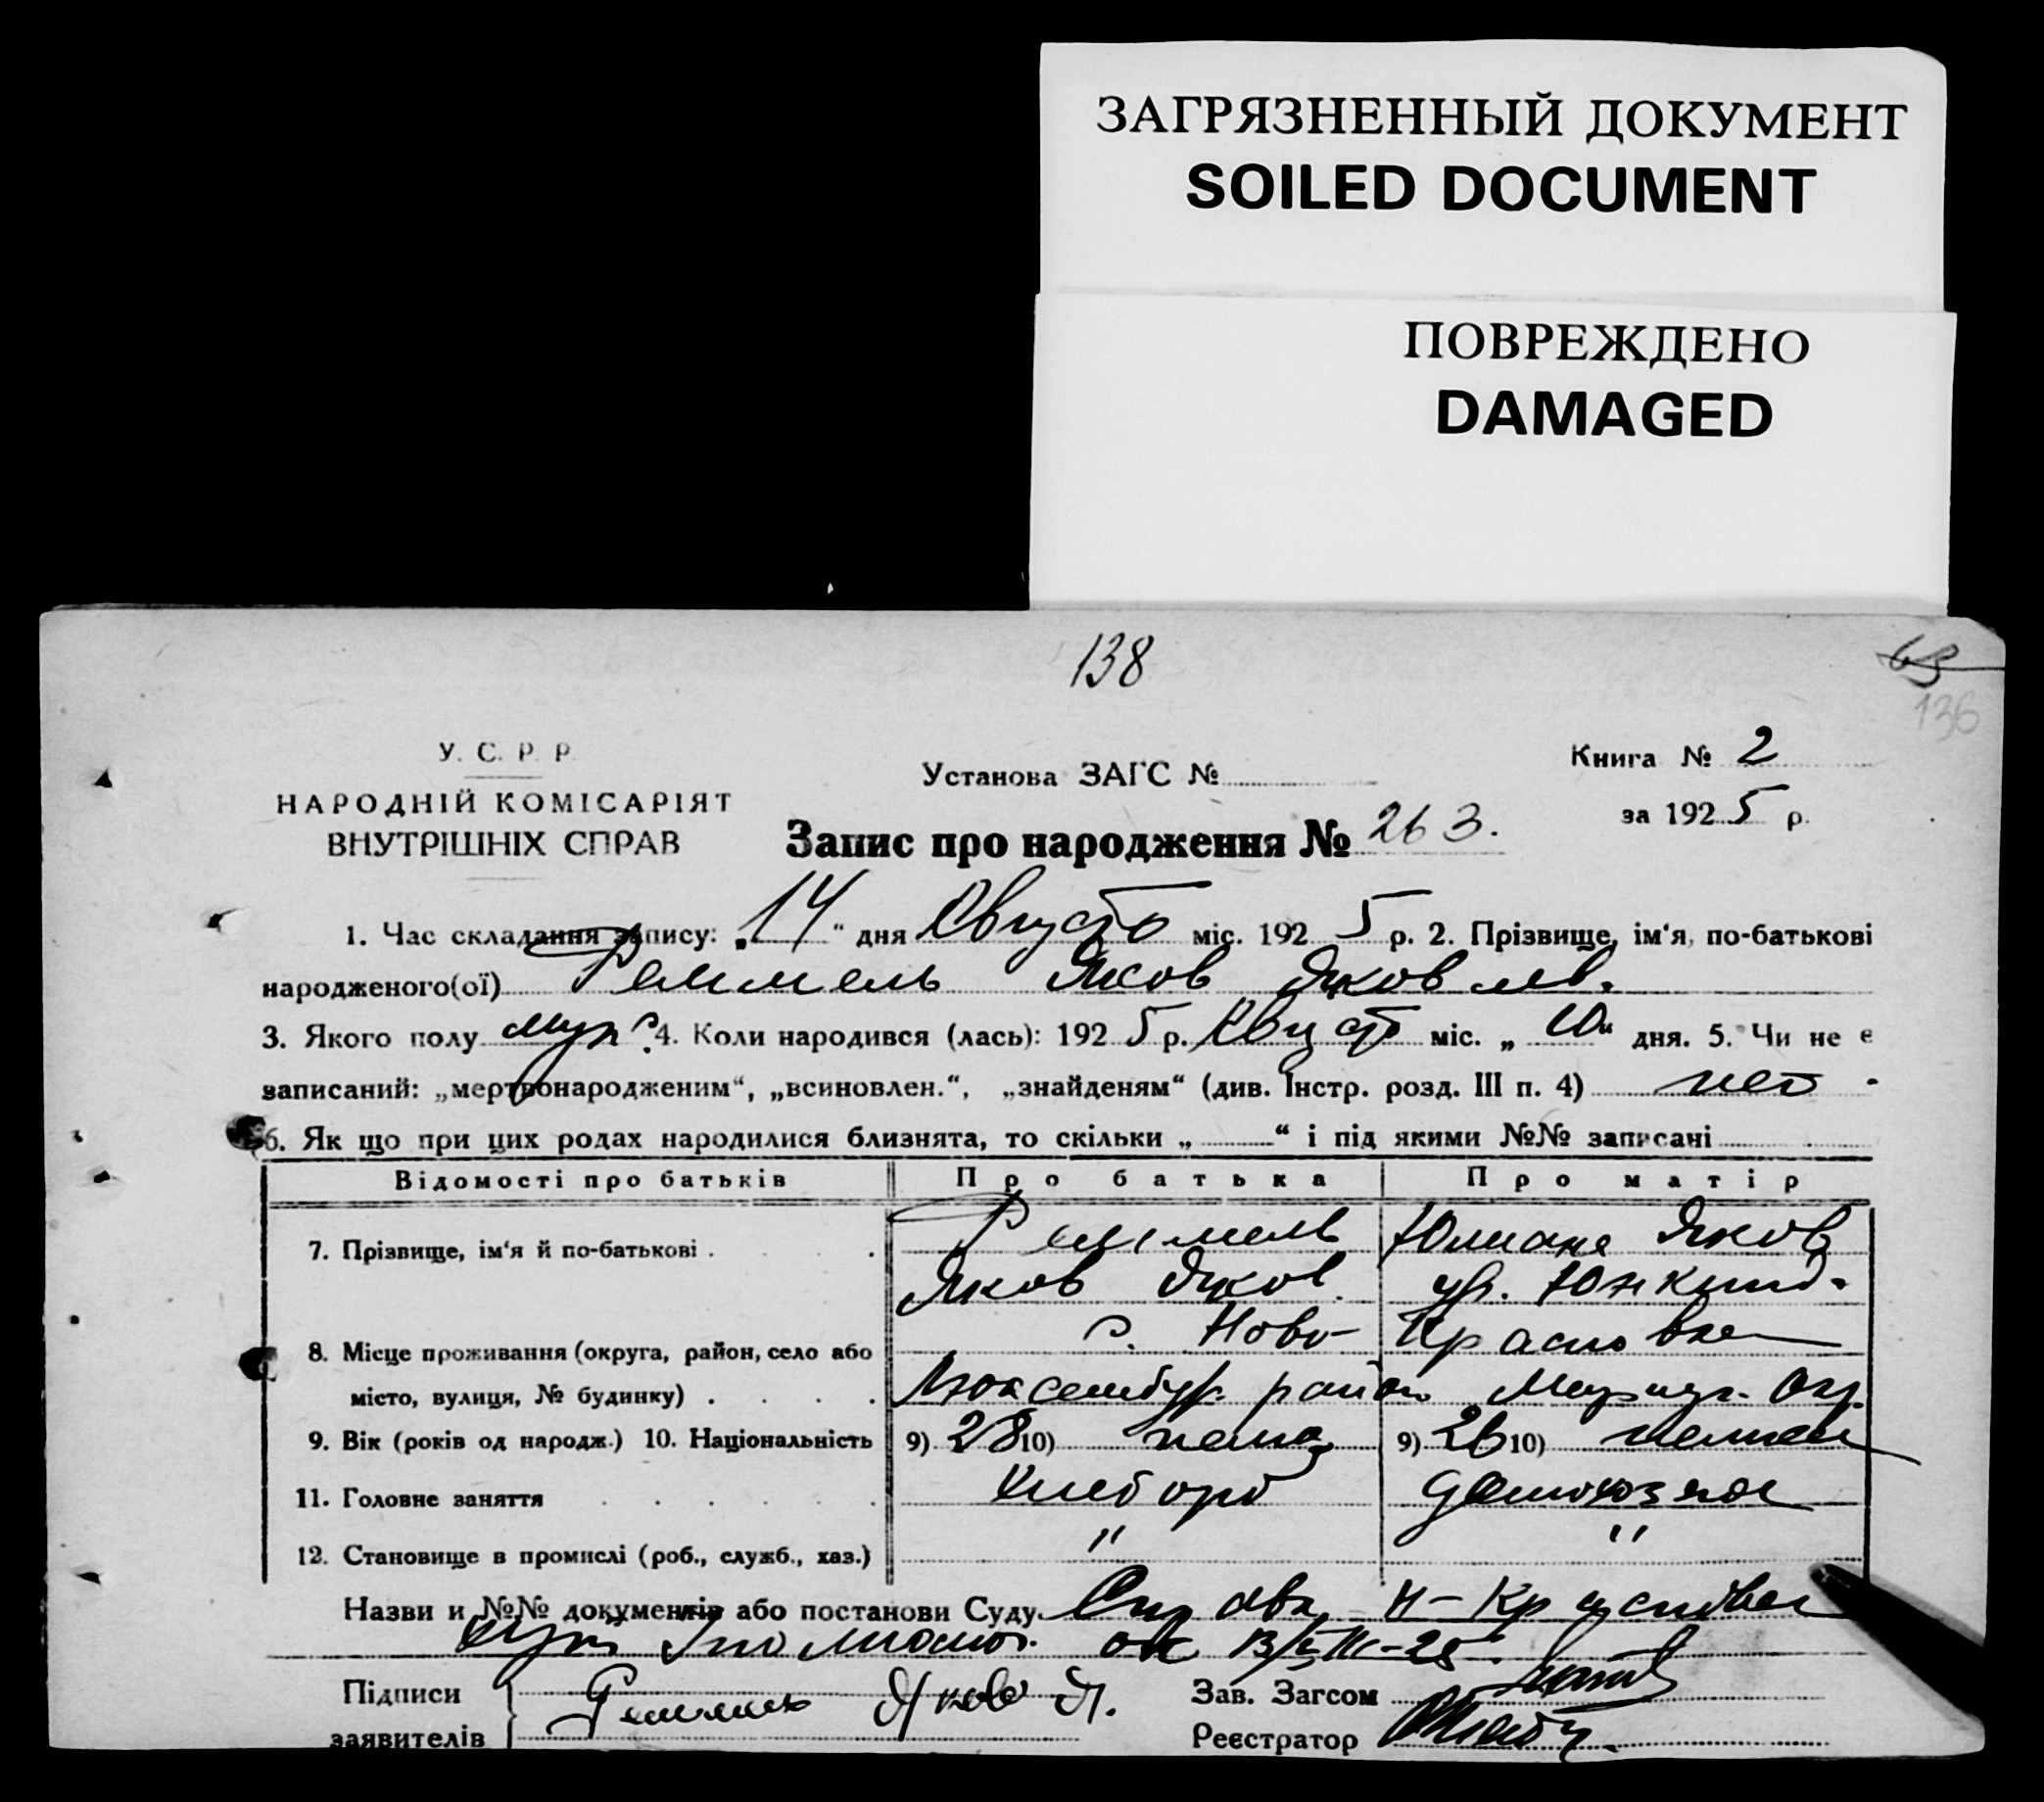 ЗАГРЯЗНЕННЫЙ ДОКУМЕНТ
SOILED DOCUMENT
ПОВРЕЖДЕНО
DAMAGED
138
63
136
У. С. Р. Р.
НАРОДНІЙ КОМІСАРІЯТ
ВНУТРІШНІХ СПРАВ
Установа ЗАГС №
Книга № 2
за 1925 р.
Запис про народження № 263.
1. Час складання запису: „14“ дня Августа міс. 1925 р. 2. Прізвище, ім‘я, по-батькові
народженого(ої) Реммель Яков Яковлев.
3. Якого полу муж. 4. Коли народився (лась): 1925 р. Август міс. „10“ дня. 5. Чи не є
записаний: „мертвонародженим“, „всиновлен.“, „знайденям“ (див. Інстр. розд. III п. 4) нет
6. Як що при цих родах народилися близнята, то скільки „ “ і під якими №№ записані
Відомості про батьків Про батька Про матір
7. Прізвище, ім‘я й по-батькові . . . . Реммель Яков
Яков Яков. ур.
8. Місце проживання (округа, район, село або с. Ново- Красновка
місто, вулиця, № будинку) . . . . Люксембур. район Мариуп. Окр.
9. Вік (років од народж.) 10. Національність 9) 28 10) немец 9) 26 10) немка
11. Головне заняття . . . . . . Хлебороб домохозяйка
12. Становище в промислі (роб., служб., хаз.) " "
Назви и №№ документів або постанови Суду Справка Н-Красновка
от 13/VIII-25
Підписи
заявителів
Реммель Яков Я.
Зав. Загсом
Реєстратор